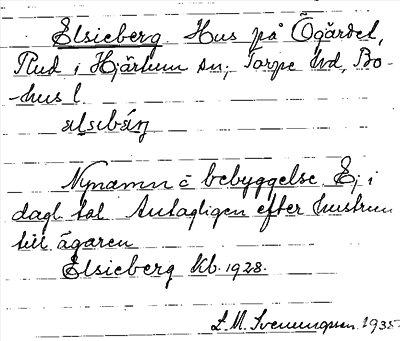 Elsieberg. Hus på Ögärdet,
Rud i Hjärtum sn; Torpe hd, Bo-
hus l.
Nynamn å bebyggelse. Ej i
dagl. tal. Antagligen efter hustrun
till ägaren
Elsieberg Kb. 1928.
L. M. Svenungsson 1935